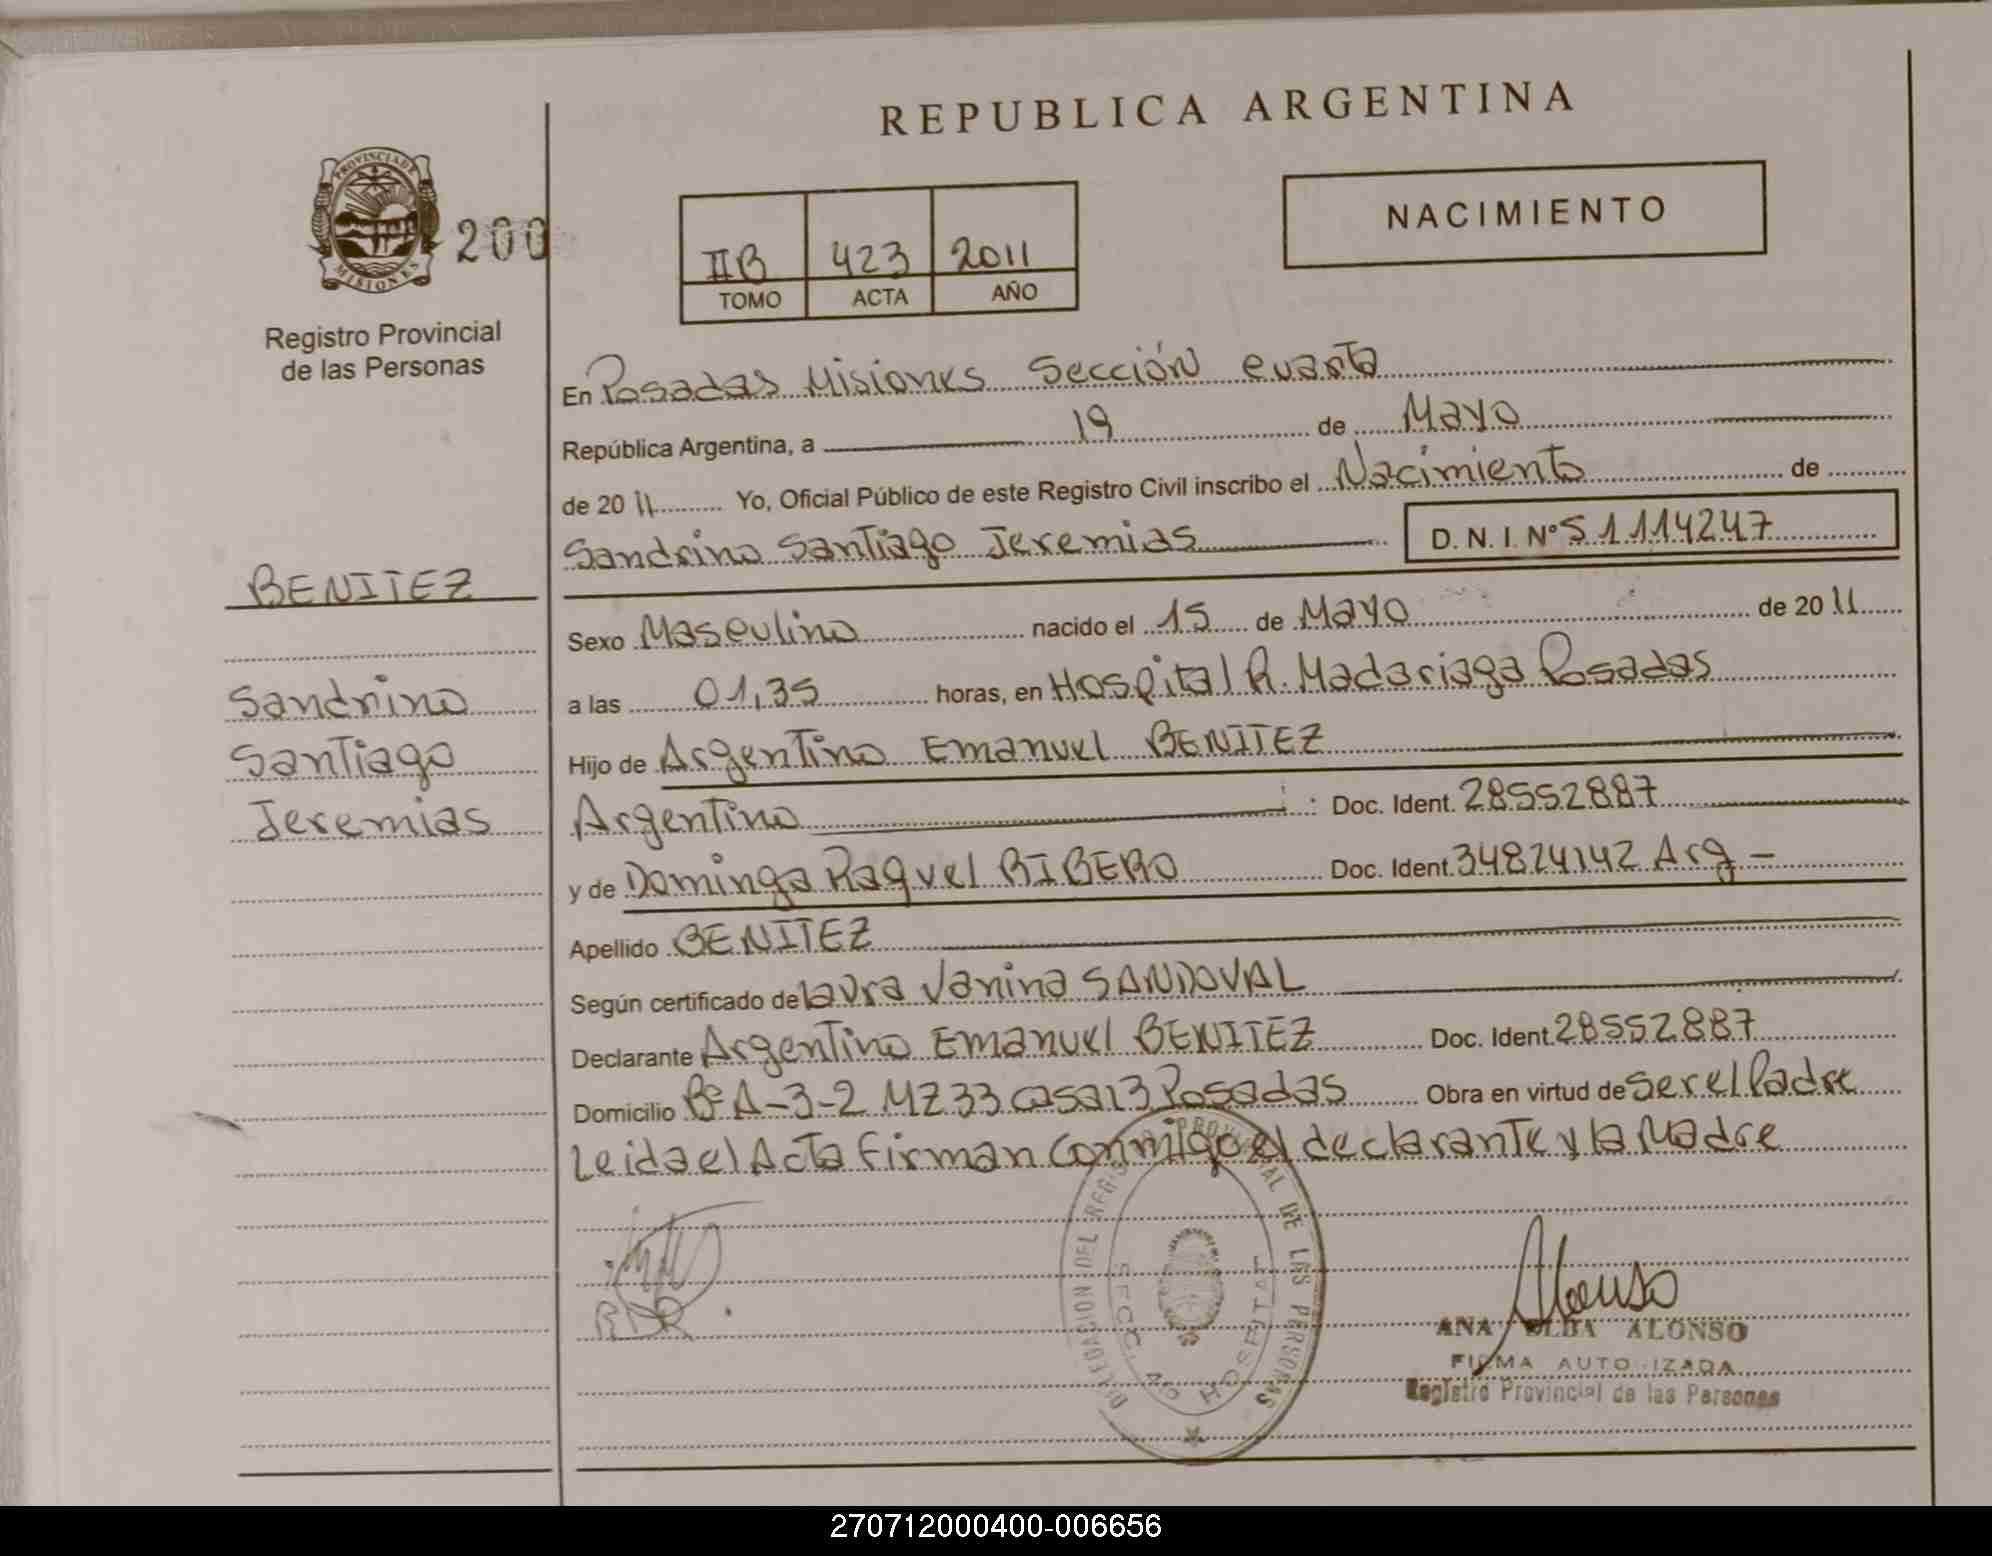 REPUBLICA ARGENTINA
PROVINCIA DE
MISIONES
200
Registro Provincial
de las Personas
NACIMIENTO
IIB 423 2011
TOMO ACTA AÑO
En Posadas Misiones Sección cuarta
República Argentina, a 19 de Mayo
de 2011 Yo, Oficial Público de este Registro Civil inscribo el Nacimiento de
Sandrino Santiago Jeremias D. N. I. Nº 51114247
BENITEZ
Sandrino
Santiago
Jeremias
Sexo Masculino nacido el 15 de Mayo de 2011
a las 01,35 horas, en Hospital R. Madariaga Posadas
Hijo de Argentino Emanuel BENITEZ
Argentino Doc. Ident. 28552887
y de Dominga Raquel RIBERO Doc. Ident. 34824142 Arg -
Apellido BENITEZ
Según certificado de laura Vanina SANDOVAL
Declarante Argentino Emanuel BENITEZ Doc. Ident. 28552887
Domicilio Bº A-3-2 MZ 33 casa 13 Posadas Obra en virtud de ser el Padre
Leida el Acta firman conmigo el declarante y la Madre
DELEGACION DEL REGISTRO PROVINCIAL DE LAS PERSONAS
SECC. 4º HOSPITAL
Alonso
ANA ELBA ALONSO
FIRMA AUTORIZADA
Registro Provincial de las Personas
270712000400-006656